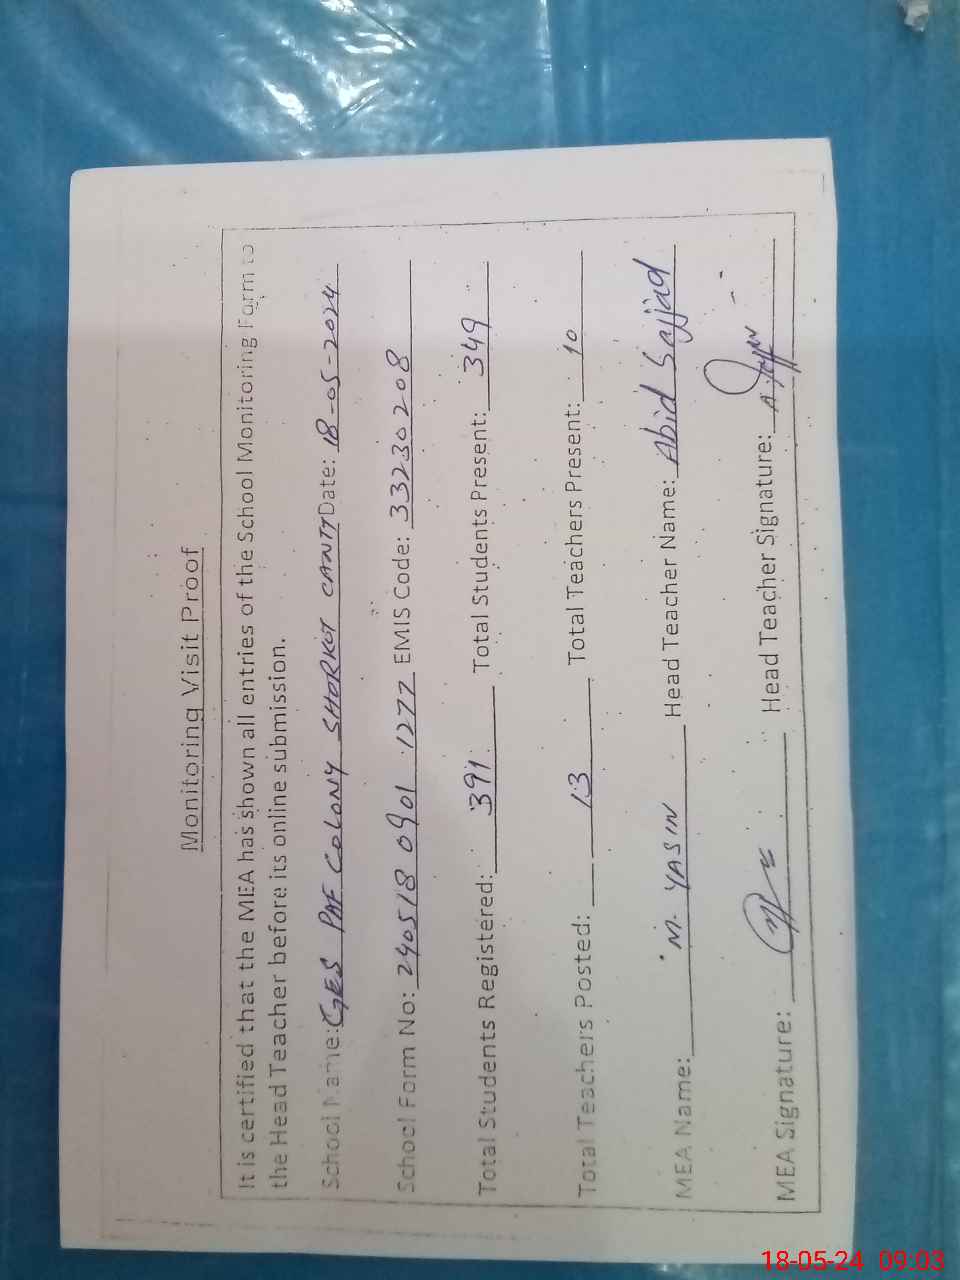 Monitoring Visit Proof
It is certified that the MEA has shown all entries of the School Monitoring Form to
the Head Teacher before its online submission.
School Name: GES PAF COLONY SHORKOT CANTT Date: 18-05-2024
School Form No: 240518 0901 1277 EMIS Code: 33230208
Total Students Registered: 391 Total Students Present: 349
Total Teachers Posted: 13 Total Teachers Present: 10
MEA Name: M. YASIN Head Teacher Name: Abid Sajjad
MEA Signature: Head Teacher Signature:
18-05-24 09:03